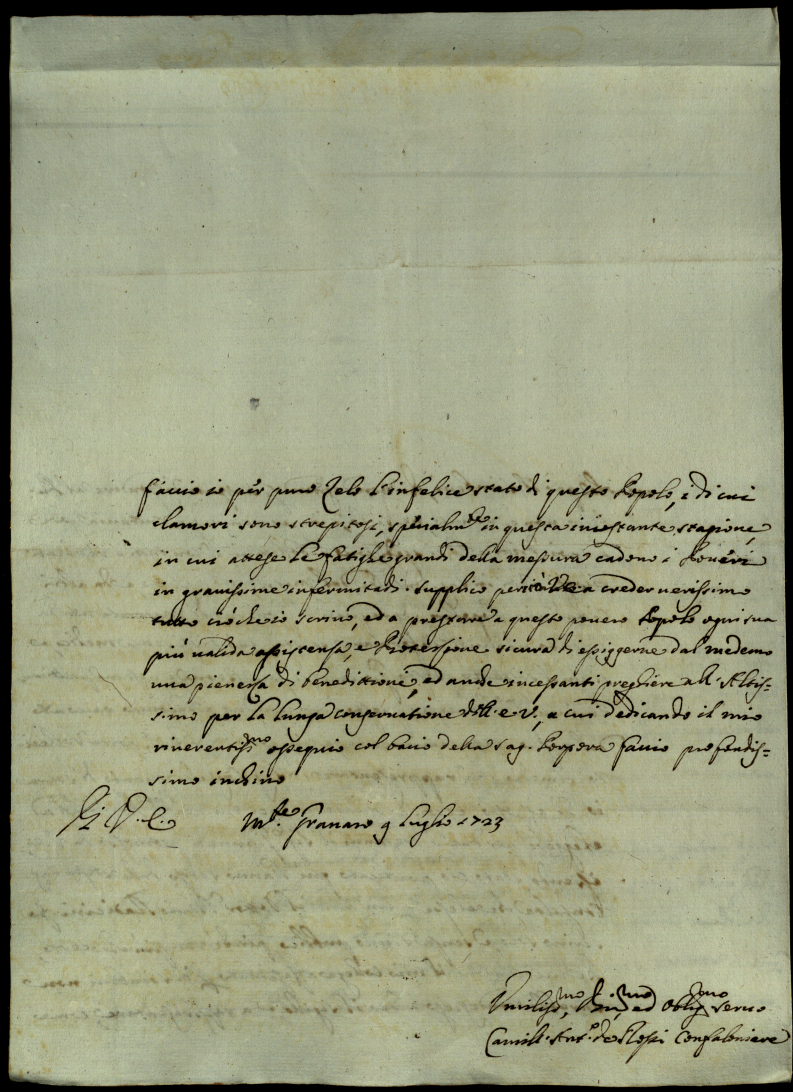 faccio io per puro Zelo l'infelice stato di questo Popolo, i di cui
clamori sono strepitosi, spècialm.te in questa incostante stagione,
in cui attese le fatighe grandi della messura cadono i Poveri
in gravissime infermitadi. Supplico perciò V.E. a creder verissimo
tutto ciò che io scrivo, ed a prestare a questo povero Popolo ogni sua
più valida assistenza, e Protezzione sicura di essiggerne dal medemo
una pienezza di benedittioni, ed anche incessanti preghiere all'Altis-
simo per la lunga conservatione dell'E.V., a cui dedicando il mio
riverentiss.mo ossequio col bacio della Sag. Porpora faccio profondis-
simo inchino
Di V.E.
M.te Granaro 9 Luglio 1723
Umiliss.mo, ed Oblig.mo Servo
Camill. Ant.o de Rossi Confaloniere